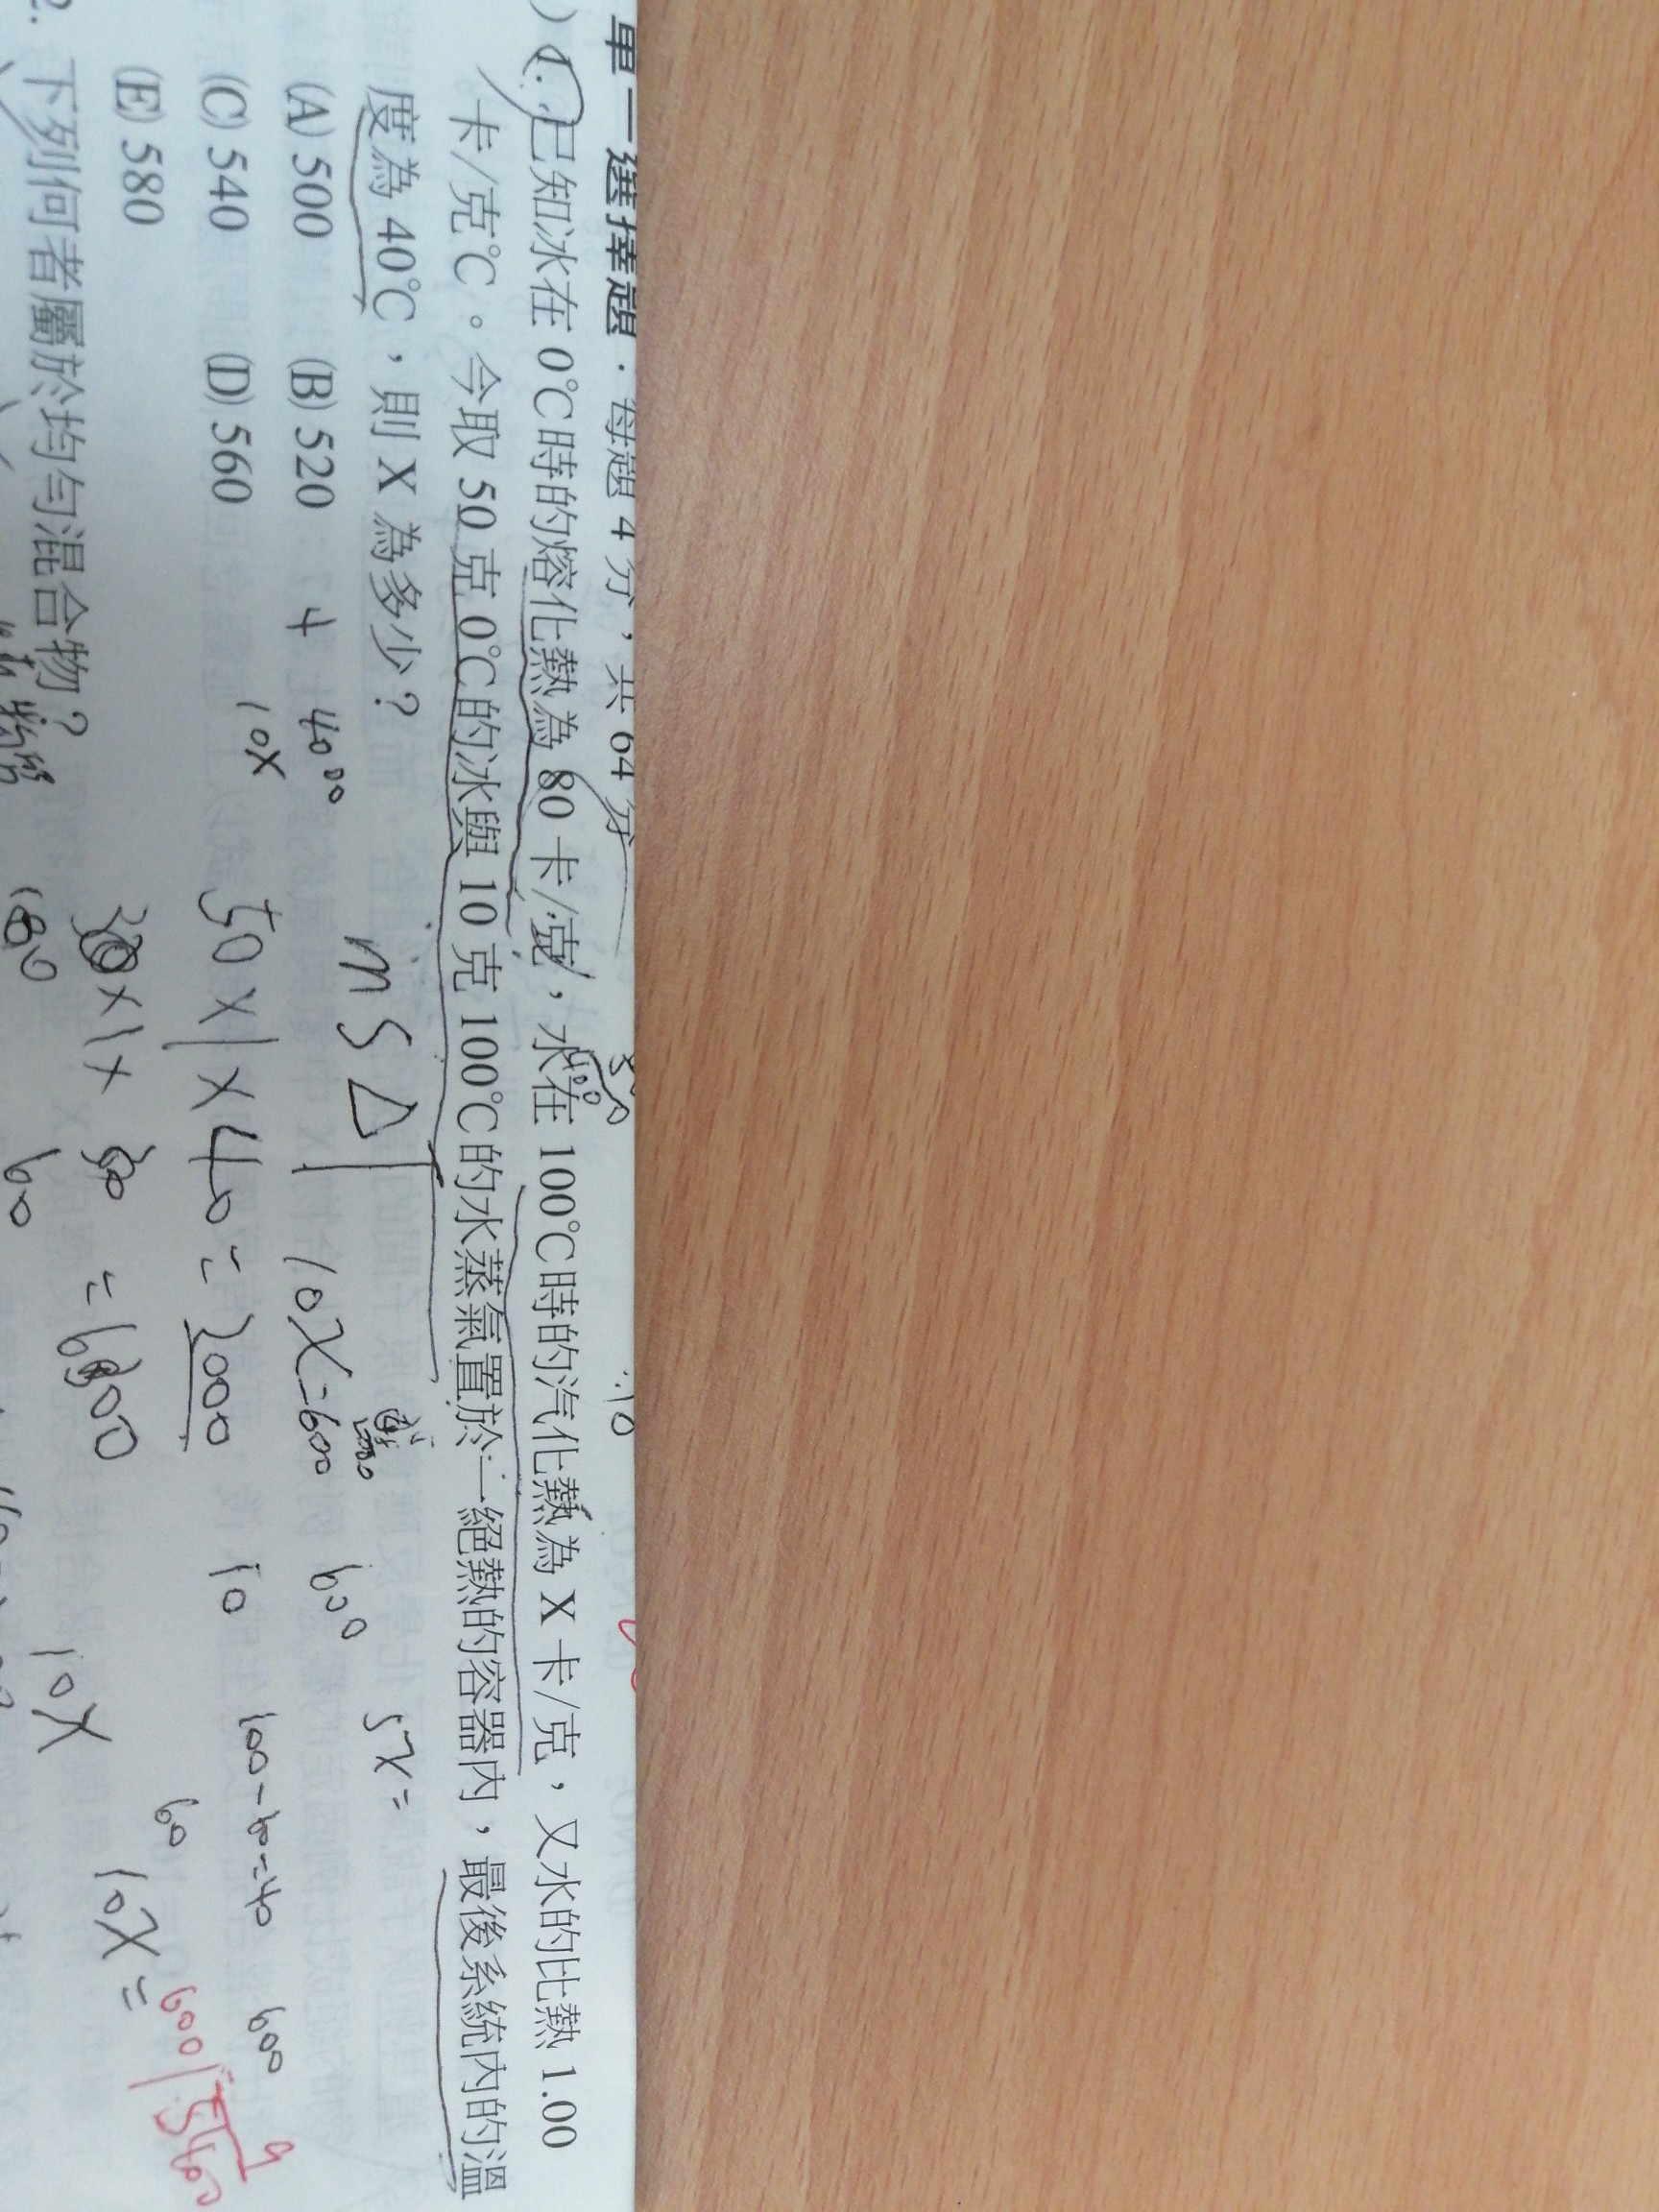 單一選擇題．每題 4 分，共 64 分
) 1. 已知冰在 0℃時的熔化熱為 80 卡/克，水在 100℃時的汽化熱為 X 卡/克，又水的比熱 1.00
卡/克℃。今取 50 克 0℃的冰與 10 克 100℃的水蒸氣置於一絕熱的容器內，最後系統內的溫
度為 40℃，則 X 為多少？
(A) 500 (B) 520
(C) 540 (D) 560
(E) 580
2. 下列何者屬於均勻混合物？
400
10
+ 4000
10X
m S Δ T
50 × 1 × 40 = 2000
10X-600
600
5X =
10
100-60=40
600
60
10X
10X =
600
180
60